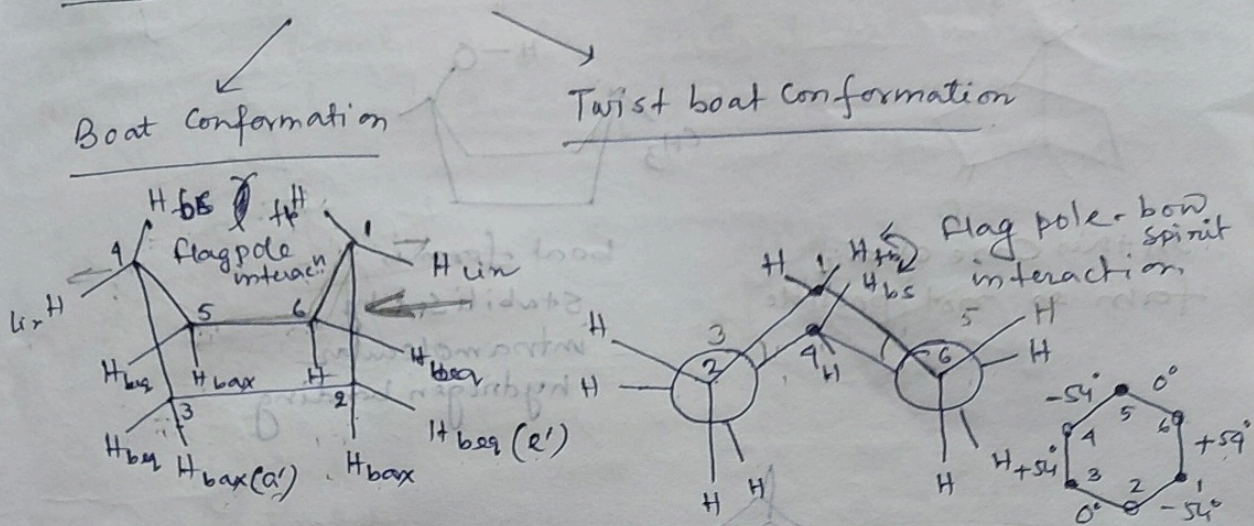 Boat Conformation
Twist boat Conformation
H
flagpole
interac"
4
1
H
H lin
5
6
H beq
H bax
H
H beq
3
2
H beq
H bax(a')
H bax
H beq (e')
Flag pole-bow
spirit
interaction
H
1
H bs
3
2
4
H
H
H
H
H
5
6
H
H
H
H
-54°
0°
5
6
+54°
4
+54°
3
2
1
0°
-54°